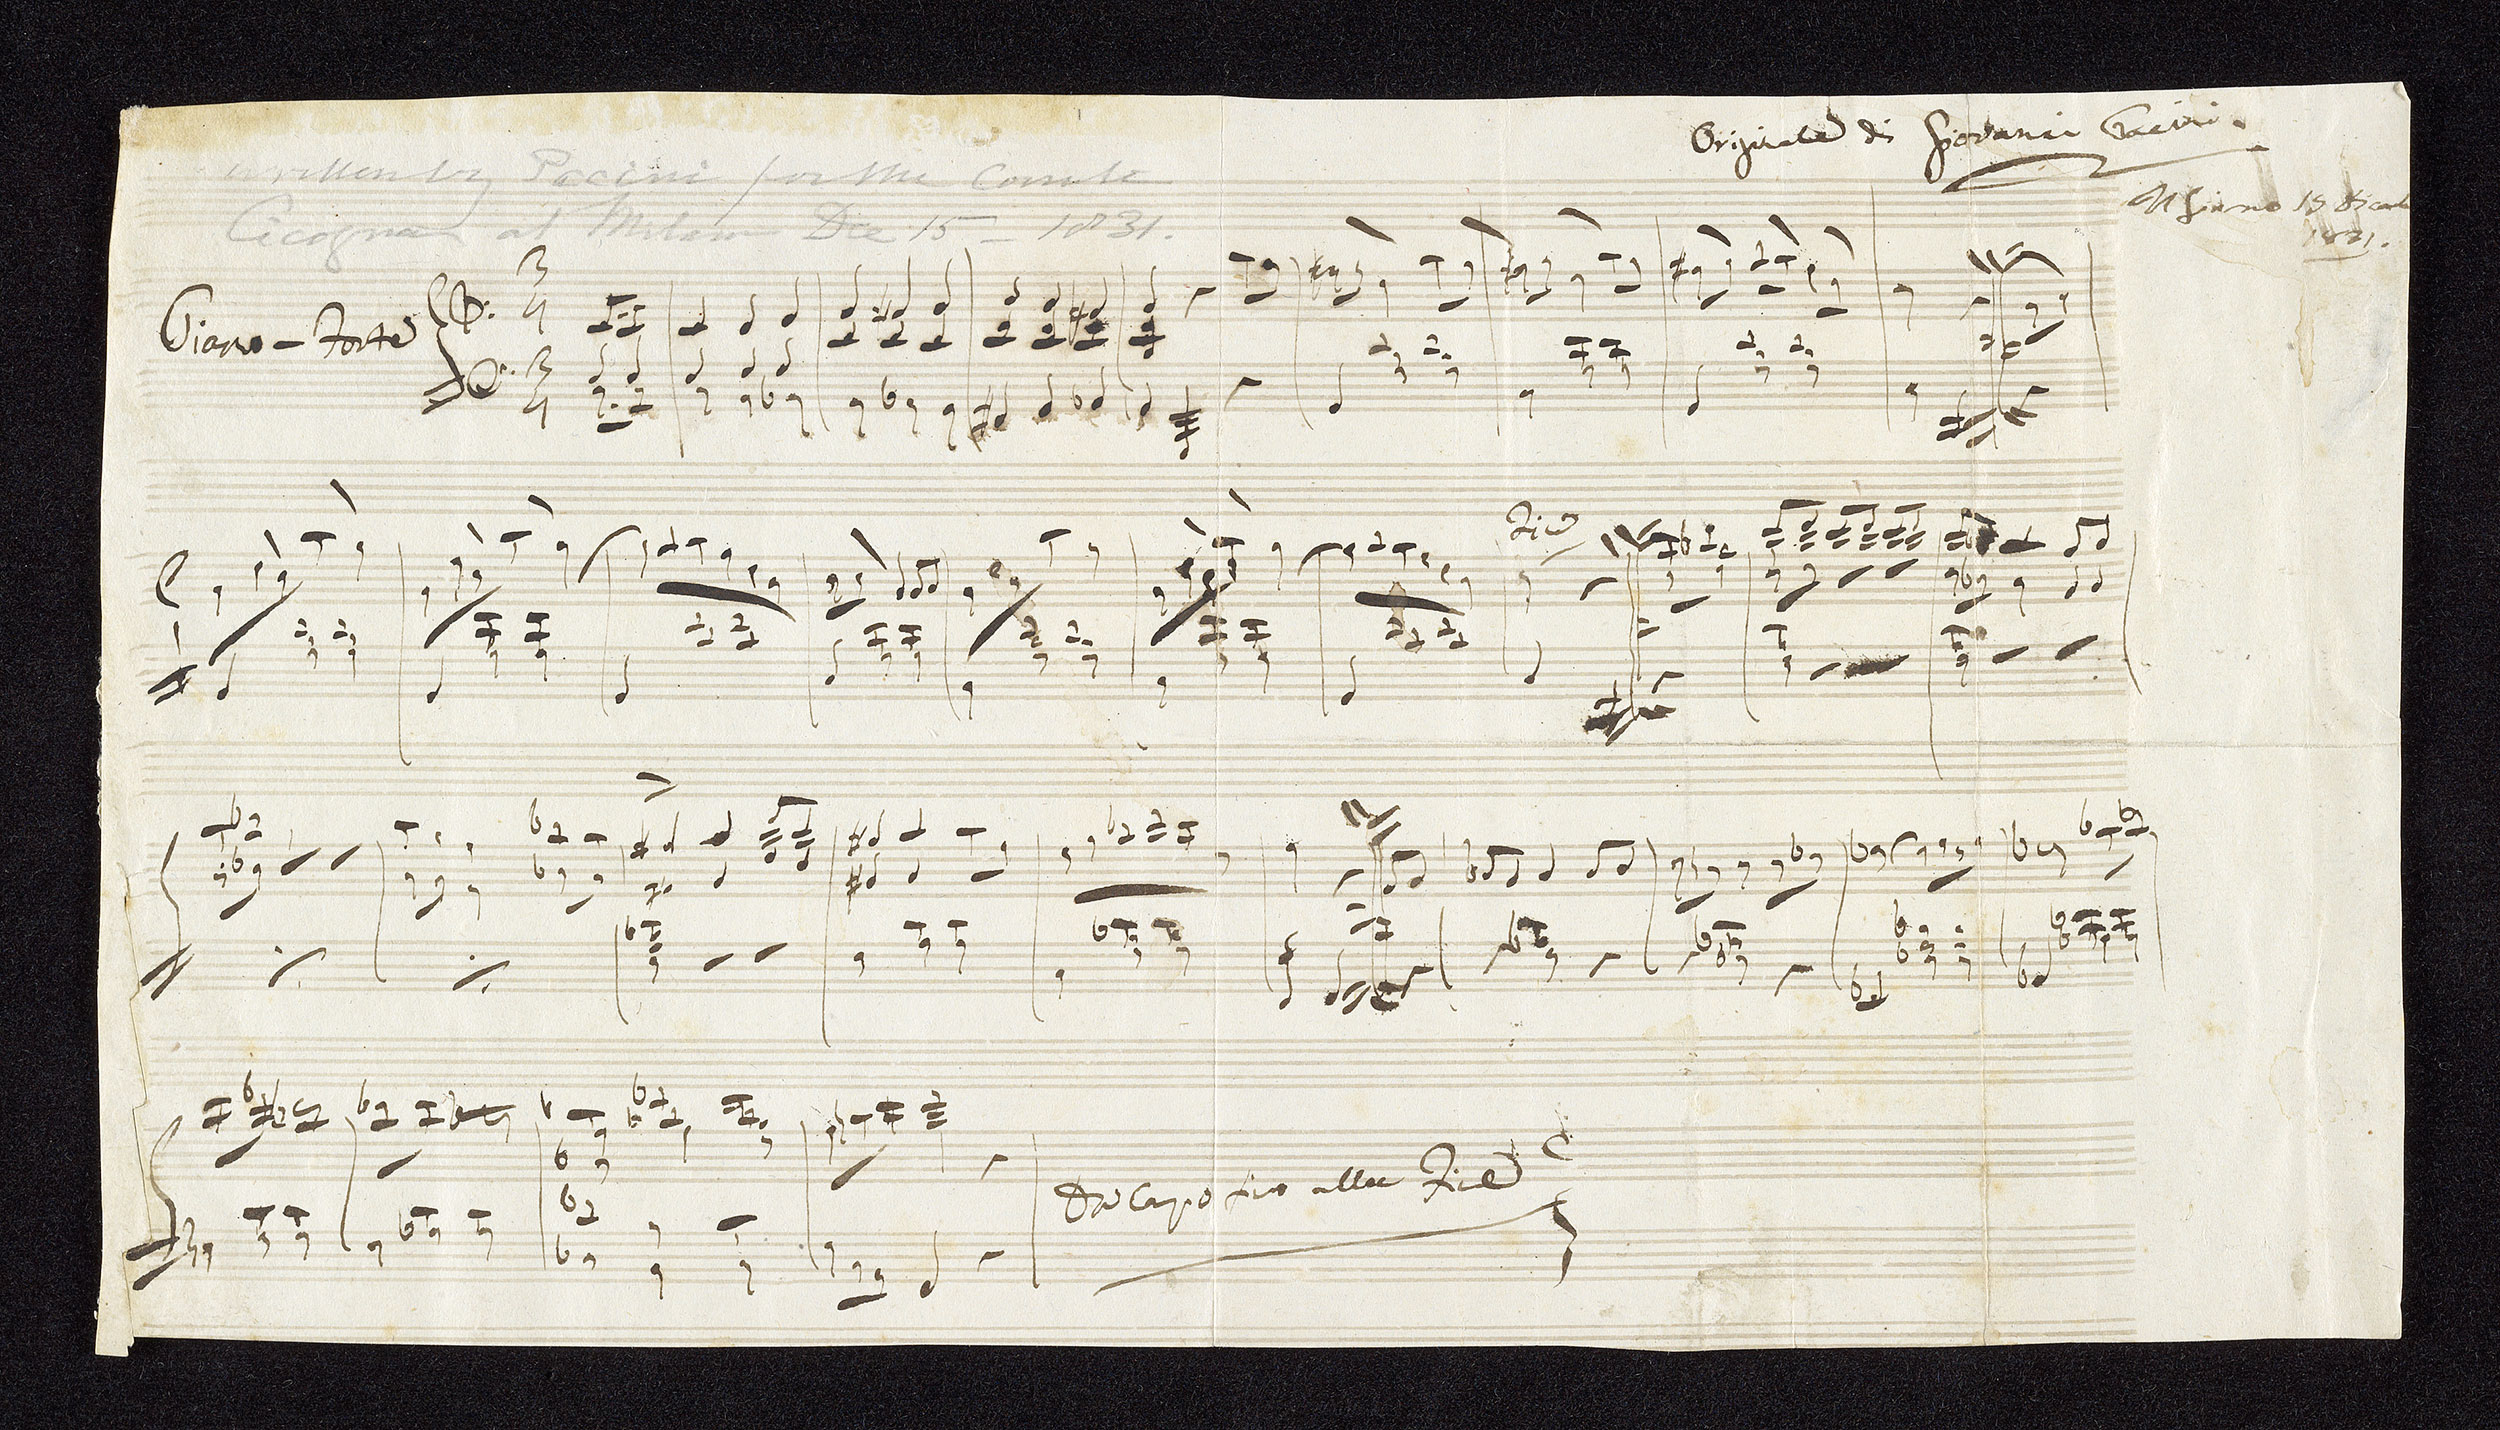 Originale di Giovanni Pacini.
Il Giorno 15 Dicembre
1831.
written by Pacini for the Comte
Cicogna at Milan Dec 15 - 1831.
Piano-Forte
3
4
3
4
Fine
Da Capo sino alla Fine